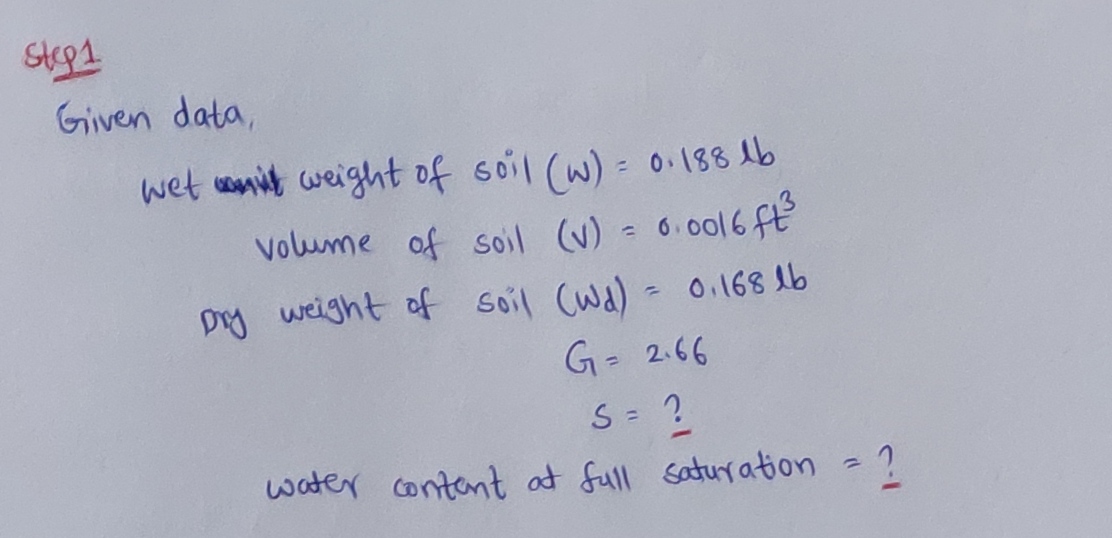 Step1
Given data,
wet weight of soil (W) = 0.188 lb
volume of soil (V) = 0.0016 ft³
Dry weight of soil (Wd) = 0.168 lb
G = 2.66
S = ?
water content at full saturation = ?